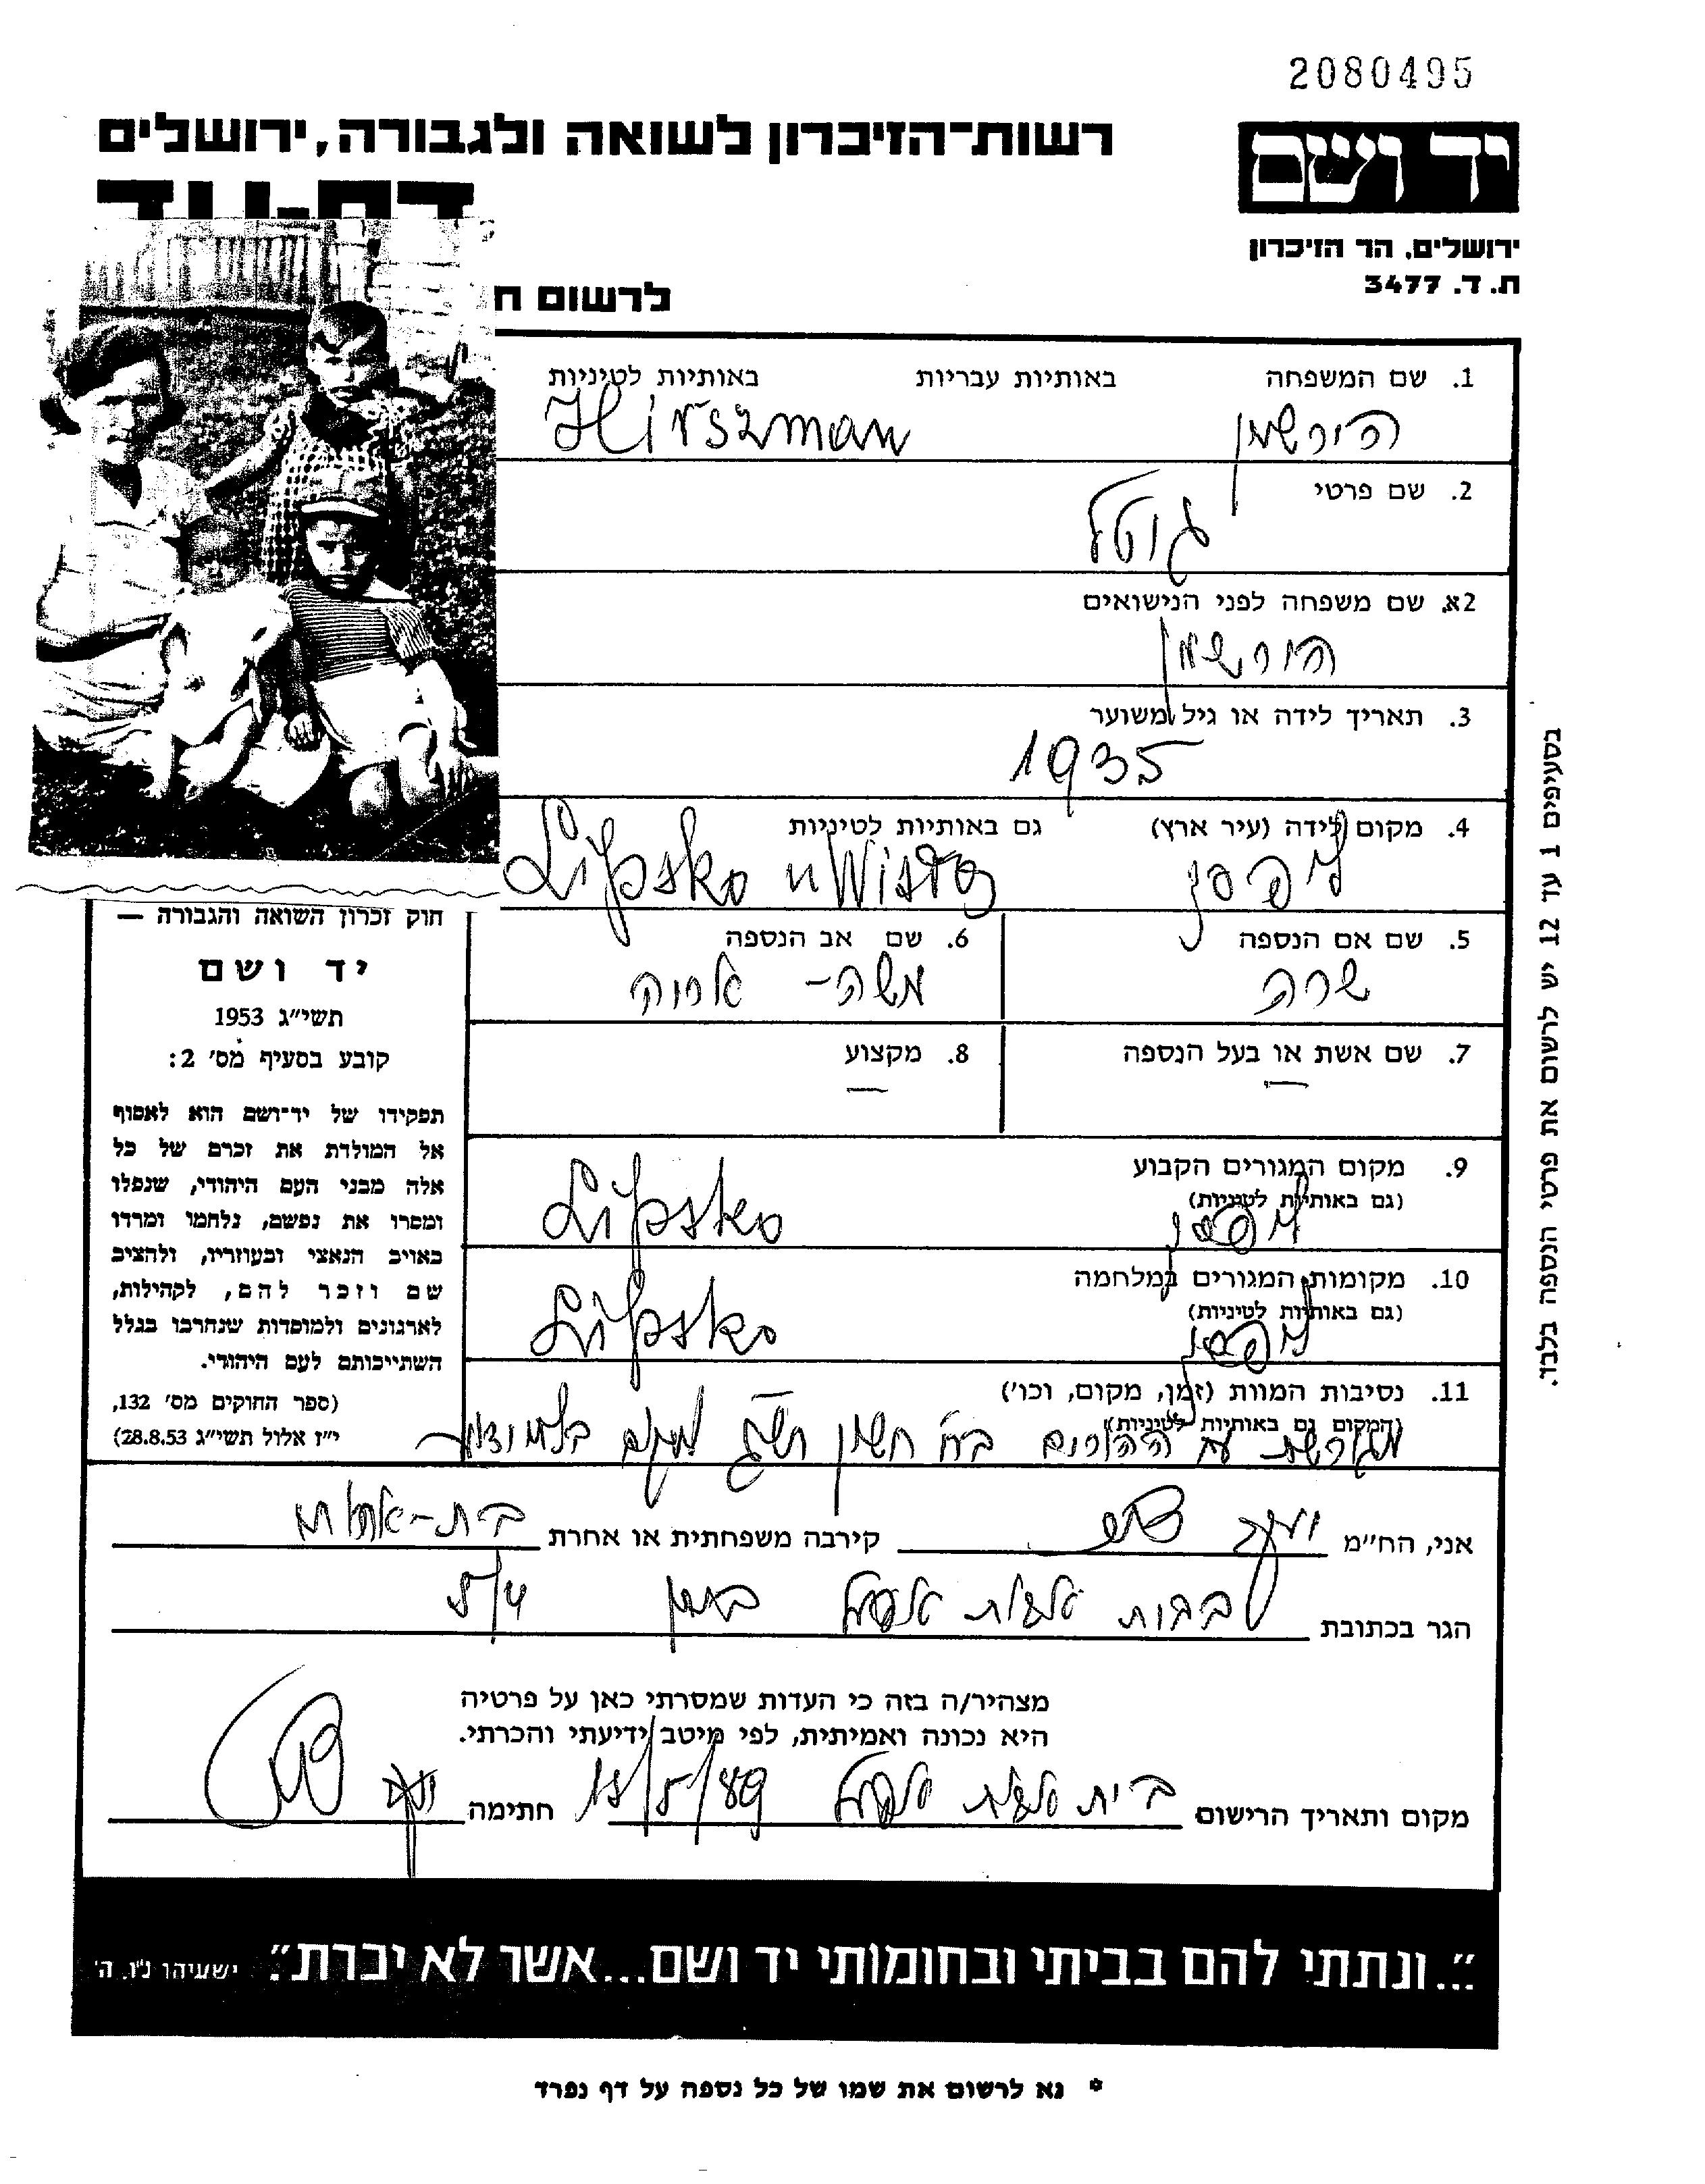 2080495
רשות־הזיכרון לשואה ולגבורה, ירושלים
יד ושם
דף-עד
ירושלים, הר הזיכרון
ת. ד. 3477
לרשום ח
1. שם המשפחה באותיות עבריות באותיות לטיניות
הירשמן Hirszman
2. שם פרטי
גוטל
2א. שם משפחה לפני הנישואים
הירשמן
3. תאריך לידה או גיל משוער
1935
4. מקום לידה (עיר ארץ) גם באותיות לטיניות
ליפסק Lipsko
5. שם אם הנספה 6. שם אב הנספה
שרה משה-
7. שם אשת או בעל הנספה 8. מקצוע
— —
9. מקום המגורים הקבוע
(גם באותיות לטיניות)
ליפסק Lipsko
10. מקומות המגורים במלחמה
(גם באותיות לטיניות)
ליפסק Lipsko
11. נסיבות המוות (זמן, מקום, וכו')
(המקום גם באותיות לטיניות)
מגורשת עם ההורים חשון תש"ג
חוק זכרון השואה והגבורה —
יד ושם
תשי"ג 1953
קובע בסעיף מס' 2:
תפקידו של יד־ושם הוא לאסוף
אל המולדת את זכרם של כל
אלה מבני העם היהודי, שנפלו
ומסרו את נפשם, נלחמו ומרדו
באויב הנאצי ובעוזריו, ולהציב
שם וזכר להם, לקהילות,
לארגונים ולמוסדות שנחרבו בגלל
השתייכותם לעם היהודי.
(ספר החוקים מס' 132,
י"ז אלול תשי"ג 28.8.53)
אני, הח"מ יעקב קירבה משפחתית או אחרת בת-אחות
הגר בכתובת
מצהיר/ה בזה כי העדות שמסרתי כאן על פרטיה
היא נכונה ואמיתית, לפי מיטב ידיעתי והכרתי.
מקום ותאריך הרישום בית חתימה יעקב
"...ונתתי להם בביתי ובחומותי יד ושם...אשר לא יכרת". ישעיהו נ"ו, ה'
* נא לרשום את שמו של כל נספה על דף נפרד
בסעיפים 1 עד 12 יש לרשום את פרטי הנספה בלבד.